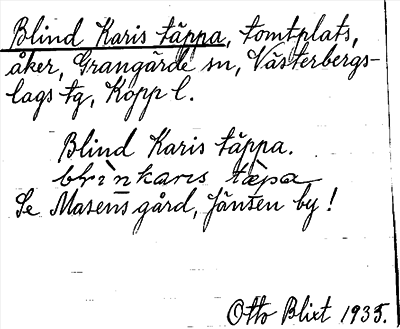 Blind Karis täppa, tomtplats,
åker, Grangärde sn, Västerbergs-
lags tg, Kopp l.
Blind Karis täppa.
Se Masens gård, Jänsen by!
Otto Blixt 1935.